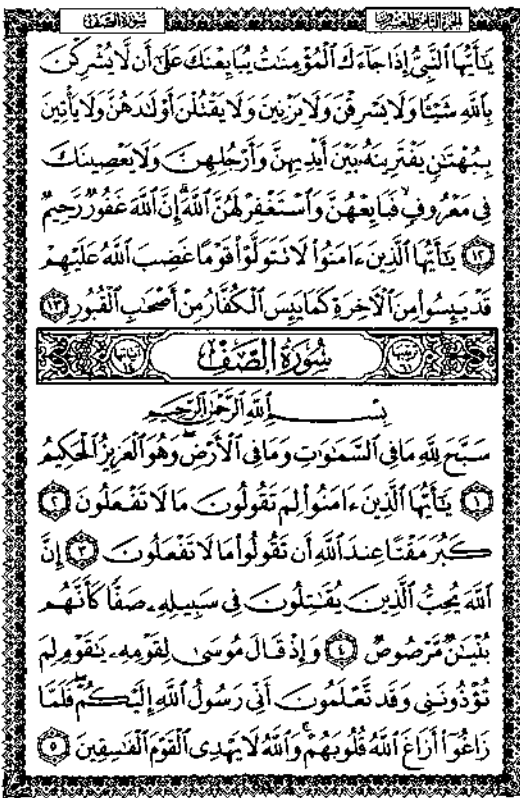 سُورَةُ الصَّفِّ
الجزء الثامن والعشرون
يَٰٓأَيُّهَا ٱلنَّبِىُّ إِذَا جَآءَكَ ٱلْمُؤْمِنَٰتُ يُبَايِعْنَكَ عَلَىٰٓ أَن لَّا يُشْرِكْنَ
بِٱللَّهِ شَيْـًٔا وَلَا يَسْرِقْنَ وَلَا يَزْنِينَ وَلَا يَقْتُلْنَ أَوْلَٰدَهُنَّ وَلَا يَأْتِينَ
بِبُهْتَٰنٍ يَفْتَرِينَهُۥ بَيْنَ أَيْدِيهِنَّ وَأَرْجُلِهِنَّ وَلَا يَعْصِينَكَ
فِى مَعْرُوفٍ ۙ فَبَايِعْهُنَّ وَٱسْتَغْفِرْ لَهُنَّ ٱللَّهَ ۖ إِنَّ ٱللَّهَ غَفُورٌ رَّحِيمٌ
١٢ يَٰٓأَيُّهَا ٱلَّذِينَ ءَامَنُوا۟ لَا تَتَوَلَّوْا۟ قَوْمًا غَضِبَ ٱللَّهُ عَلَيْهِمْ
قَدْ يَئِسُوا۟ مِنَ ٱلْءَاخِرَةِ كَمَا يَئِسَ ٱلْكُفَّارُ مِنْ أَصْحَٰبِ ٱلْقُبُورِ ١٣
ترتيبها ٦١ سُورَةُ الصَّفِّ آياتها ١٤
بِسْمِ ٱللَّهِ ٱلرَّحْمَٰنِ ٱلرَّحِيمِ
سَبَّحَ لِلَّهِ مَا فِى ٱلسَّمَٰوَٰتِ وَمَا فِى ٱلْأَرْضِ ۖ وَهُوَ ٱلْعَزِيزُ ٱلْحَكِيمُ
١ يَٰٓأَيُّهَا ٱلَّذِينَ ءَامَنُوا۟ لِمَ تَقُولُونَ مَا لَا تَفْعَلُونَ ٢
كَبُرَ مَقْتًا عِندَ ٱللَّهِ أَن تَقُولُوا۟ مَا لَا تَفْعَلُونَ ٣ إِنَّ
ٱللَّهَ يُحِبُّ ٱلَّذِينَ يُقَٰتِلُونَ فِى سَبِيلِهِۦ صَفًّا كَأَنَّهُم
بُنْيَٰنٌ مَّرْصُوصٌ ٤ وَإِذْ قَالَ مُوسَىٰ لِقَوْمِهِۦ يَٰقَوْمِ لِمَ
تُؤْذُونَنِى وَقَد تَّعْلَمُونَ أَنِّى رَسُولُ ٱللَّهِ إِلَيْكُمْ ۖ فَلَمَّا
زَاغُوٓا۟ أَزَاغَ ٱللَّهُ قُلُوبَهُمْ ۚ وَٱللَّهُ لَا يَهْدِى ٱلْقَوْمَ ٱلْفَٰسِقِينَ ٥